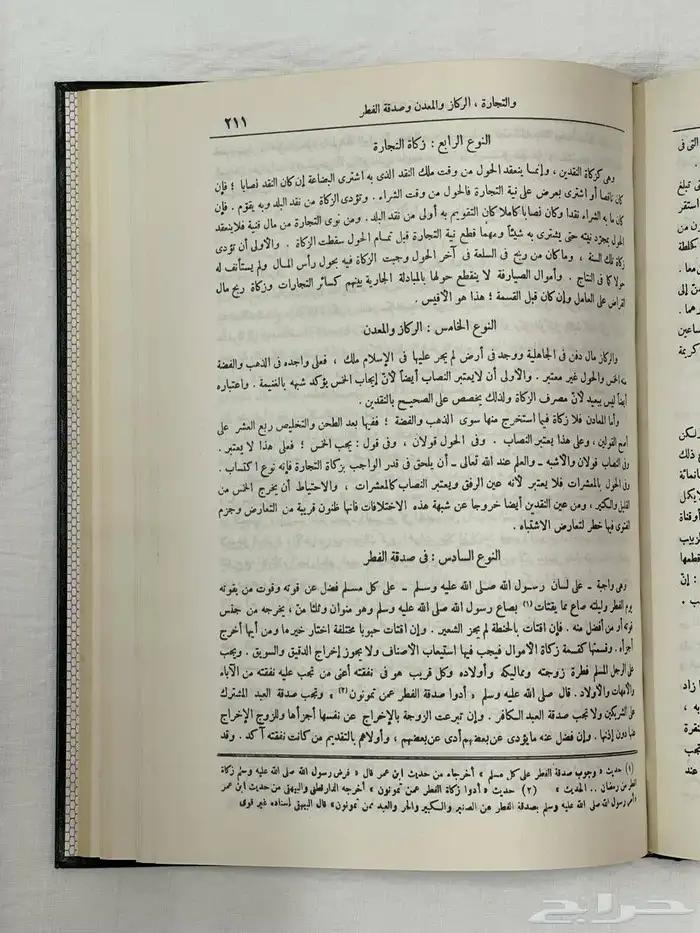 والتجارة ، الركاز والمعدن وصدقة الفطر
٢١١
النوع الرابع : زكاة التجارة
وهى كزكاة النقدين ، وإنما ينعقد الحول من وقت ملك النقد الذى به اشترى البضاعة إن كان النقد نصابا ؛ فإن
كان ناقصا أو اشترى بعرض على نية التجارة فالحول من وقت الشراء . وتؤدى الزكاة من نقد البلد وبه يقوم . فإن
كان ما به الشراء نقدا وكان نصابا كاملا كان التقويم به أولى من نقد البلد . ومن نوى التجارة من مال قنية فلا ينعقد
الحول بمجرد نيته حتى يشترى به شيئاً ومهما قطع نية التجارة قبل تمام الحول سقطت الزكاة . والأولى أن تؤدى
زكاة تلك السنة ، وما كان من ربح فى السلعة فى آخر الحول وجبت الزكاة فيه بحول رأس المال ولم يستأنف له
حولا كما فى النتاج . وأموال الصيارفة لا ينقطع حولها بالمبادلة الجارية بينهم كسائر التجارات وزكاة ربح مال
القراض على العامل وإن كان قبل القسمة ؛ هذا هو الأقيس .
النوع الخامس : الركاز والمعدن
والركاز مال دفن فى الجاهلية ووجد فى أرض لم يجر عليها فى الإسلام ملك ، فعلى واجده فى الذهب والفضة
منه الخمس والحول غير معتبر . والأولى أن لا يعتبر النصاب أيضاً لأنّ إيجاب الخمس يؤكد شبهه بالغنيمة . واعتباره
أيضاً ليس ببعيد لأنّ مصرفه مصرف الزكاة ولذلك يخصص على الصحيح بالنقدين .
وأما المعادن فلا زكاة فيما استخرج منها سوى الذهب والفضة ؛ ففيها بعد الطحن والتخليص ربع العشر على
أصح القولين ، وعلى هذا يعتبر النصاب . وفى الحول قولان ، وفى قول : يجب الخمس ؛ فعلى هذا لا يعتبر .
وفى النصاب قولان والأشبه ـ والعلم عند الله تعالى ـ أن يلحق فى قدر الواجب بزكاة التجارة فإنه نوع اكتساب .
وفى الحول بالمعشرات فلا يعتبر لأنه عين الرفق ويعتبر النصاب كالمعشرات ، والاحتياط أن يخرج الخمس من
القليل والكثير ، ومن عين النقدين أيضا خروجا عن شبهة هذه الاختلافات فإنها ظنون قريبة من التعارض وجزم
الفتوى فيها خطر لتعارض الاشتباه .
النوع السادس : فى صدقة الفطر
وهى واجبة ـ على لسان رسول الله صلى الله عليه وسلم ـ على كل مسلم فضل عن قوته وقوت من يقوته
يوم الفطر وليلته صاع مما يقتات (١) بصاع رسول الله صلى الله عليه وسلم وهو منوان وثلثا منّ ، يخرجه من جنس
قوته أو من أفضل منه . فإن اقتات بالحنطة لم يجز الشعير . وإن اقتات حبوبا مختلفة اختار خيرها ومن أيها أخرج
أجزأه . وقسمتها كقسمة زكاة الأموال فيجب فيها استيعاب الأصناف ولا يجوز إخراج الدقيق والسويق . ويجب
على الرجل المسلم فطرة زوجته ومماليكه وأولاده وكل قريب هو فى نفقته أعنى من تجب عليه نفقته من الآباء
والأمهات والأولاد . قال صلى الله عليه وسلم « أدوا صدقة الفطر عمن تمونون (٢) » وتجب صدقة العبد المشترك
على الشريكين ولا تجب صدقة العبد الكافر . وإن تبرعت الزوجة بالإخراج عن نفسها أجزأها وللزوج الإخراج
عنها دون إذنها . وإن فضل عنه ما يؤدى عن بعضهم أدى عن بعضهم ، وأولاهم بالتقديم من كانت نفقته آكد . وقد
(١) حديث « وجوب صدقة الفطر على كل مسلم » أخرجاه من حديث ابن عمر قال « فرض رسول الله صلى الله عليه وسلم زكاة
الفطر من رمضان .. الحديث » (٢) حديث « أدوا زكاة الفطر عمن تمونون » أخرجه الدارقطنى والبيهقى من حديث ابن عمر
« أمر رسول الله صلى الله عليه وسلم بصدقة الفطر عن الصغير والكبير والحر والعبد ممن تمونون » قال البيهقى إسناده غير قوى
حراج